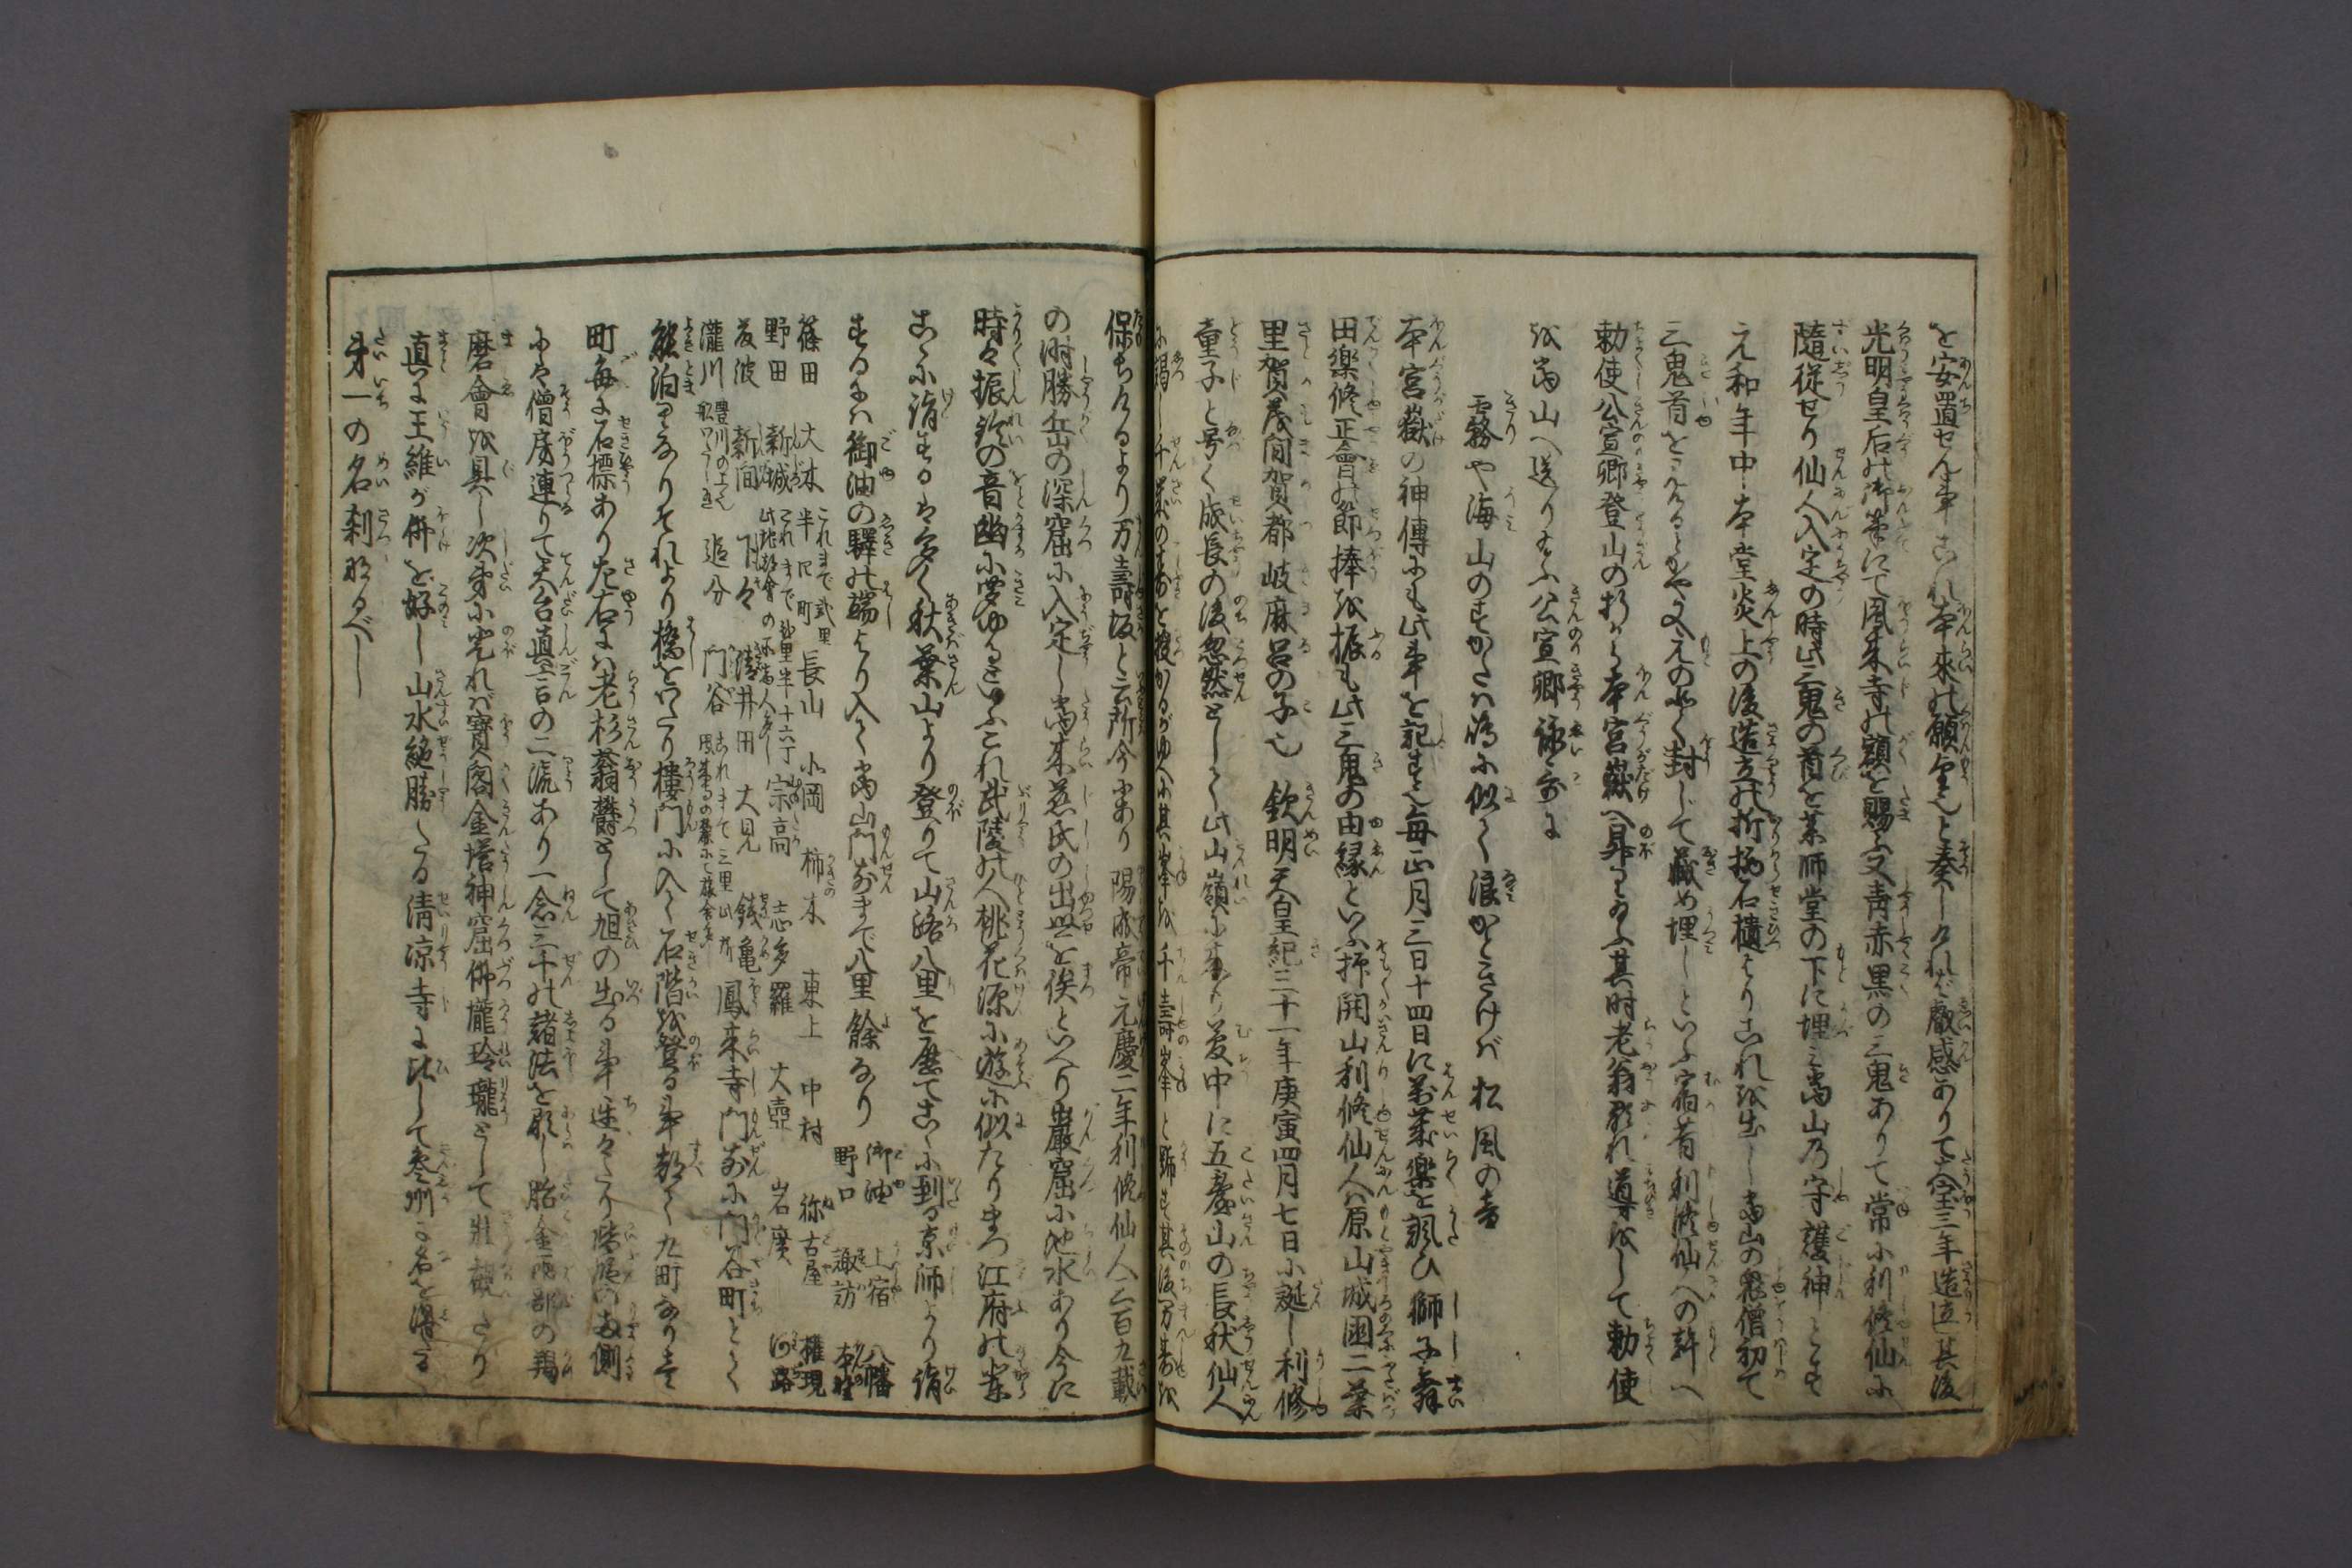 を安置せん事これ本来の願なりと奏しければ叡感ありて大宝三年造立其後
光明皇后の御筆にて鳳来寺の額を賜ふ又青赤黒の三鬼ありて常に利修仙に
随従せり仙人入定の時此三鬼の首を薬師堂の下に埋み当山の守護神とす
元和年中本堂炎上の後造立の折柄石櫃よりこれを出し当山の鬼僧初て
三鬼首を見るとや又元の如く封じて蔵め埋しといふ宿昔利修仙人の許へ
勅使公宣卿登山の折から本宮嶽へ昇り給ふ其時老翁顕れ導をして勅使
を当山へ送り給ふ公宣卿詠哥に
霧や海山のすがたは嶋に似て浪かときけば松風の音
本宮嶽の神傳にも此事を記す又毎正月三日十四日に萬歳楽を諷ひ獅子舞
田楽修正會の節捧を振も此三鬼の由縁といふ抑開山利修仙人は原山城国二葉
里賀茂間賀都岐麻呂の子也 欽明天皇紀三十一年庚寅四月七日に誕し利修
童子と号く成長の後忽然として此山嶺に来り夢中に五臺山の長秋仙人
に謁し千歳の寿を授かるがゆへに其峯を千壽峯と號す其後万寿を
保ちけるより万壽坂と云所今にあり 陽成帝元慶二年利修仙人三百九載
の時勝岳の深窟に入定し当来慈氏の出世を俟といへり巌窟に池水あり今に
時々振鈴の音幽に聞ゆるといふこれ武陵の人桃花源に遊に似たりまづ江府の輩
こゝに詣するは多く秋葉山より登りて山路八里を歴てこゝに到る京師より詣
するには御油の驛の端より入て当山門前まで八里餘なり 御油 上宿 八幡
野口 諏訪 本野
篠田 大木 これまで弐里半四町 長山 小岡 柿木 東上 中村 弥古屋 権現
野田 新城 これまで弐里半十六丁此地都會の所商人多し 宗高 志多羅 大壺 岩廣 河路
友波 新間 下々 清井田 大見 銭亀 鳳来寺門前に門谷町とて
瀧川 豊川の上にて舩わたしあり 追分 門谷 これまで三里此所鳳来寺の麓にて旅舎多し
能泊りありそれより橋をわたり樓門に入て石階を登る事都て九町なり壱
町毎に石標あり左右には老杉蓊鬱として旭の出る事遅々たり階段の両側
には僧房連りて天台真言の二流あり一念三千の諸法を顕し胎金両部の羯
磨會を具し次第に登れば寶閣金塔神窟佛壠玲瓏として壮観たり
真に王維が併を好し山水絶勝たる清凉寺に比して参州に名を得たる
第一の名刹なるべし